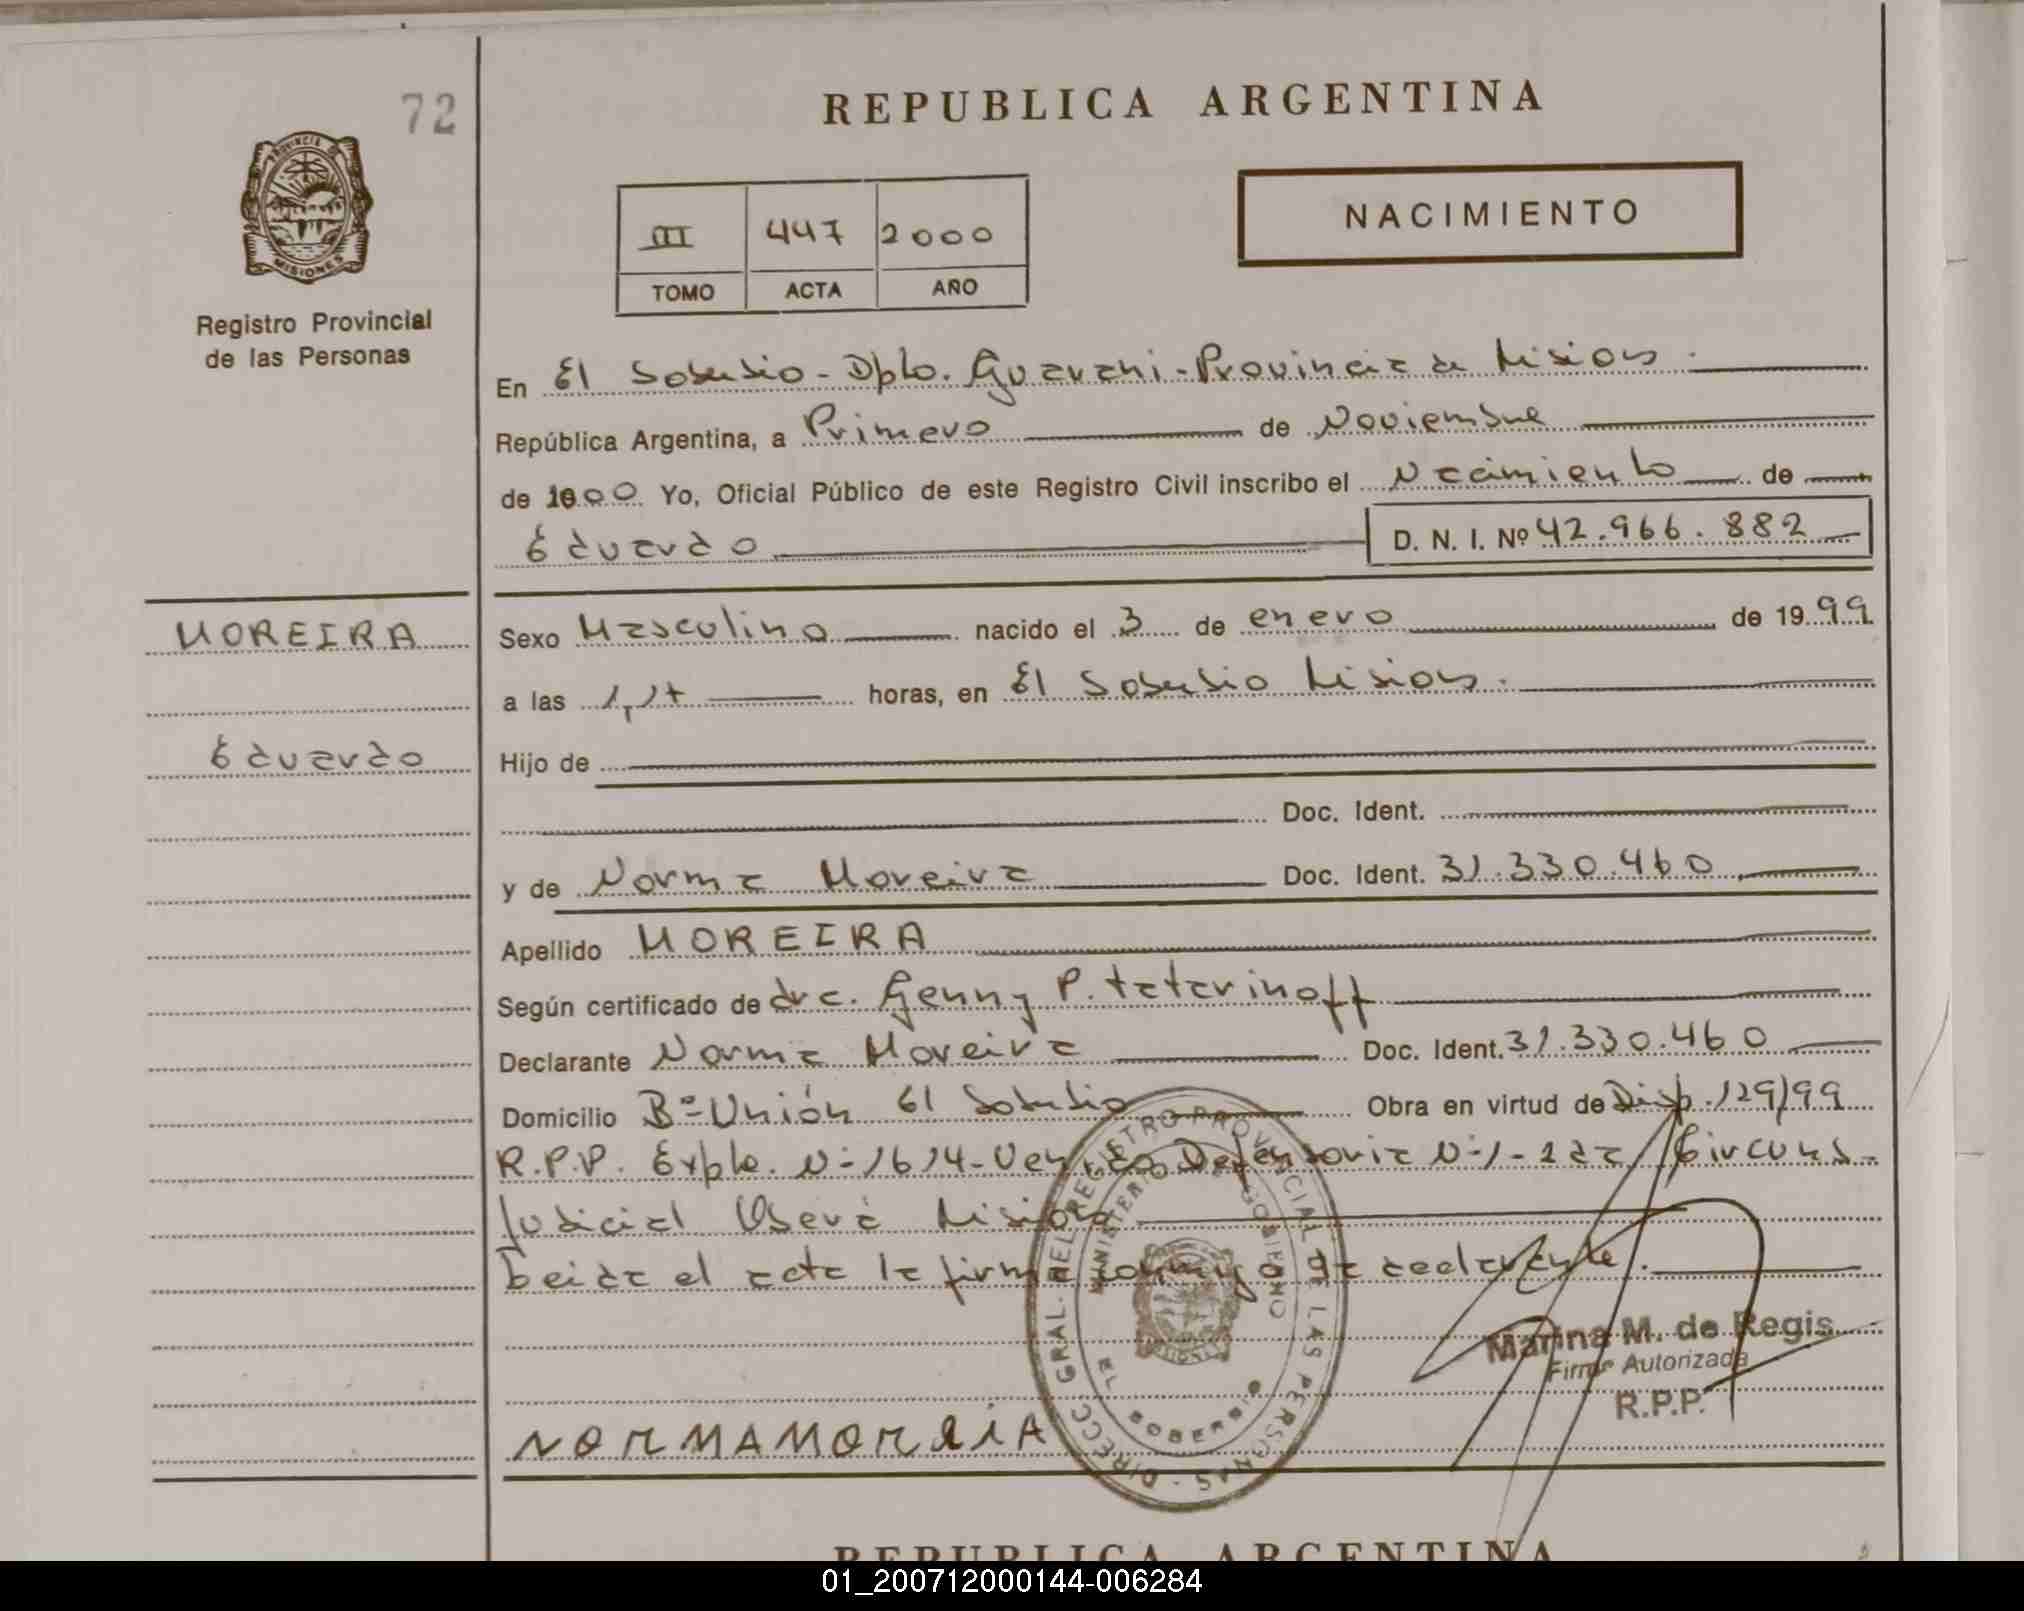 72
REPUBLICA ARGENTINA
PROVINCIA DE
MISIONES
Registro Provincial
de las Personas
III 447 2000
TOMO ACTA AÑO
NACIMIENTO
En El Soberbio - Dpto. Guarani - Provincia de Misiones.
República Argentina, a Primero de Noviembre
de 2000 Yo, Oficial Público de este Registro Civil inscribo el Nacimiento de
Eduardo D. N. I. Nº 42.966.882
MOREIRA
Sexo Masculino nacido el 3 de enero de 1999
a las horas, en El Soberbio Misiones.
Eduardo
Hijo de
Doc. Ident.
y de Norma Moreira Doc. Ident. 31.330.460
Apellido MOREIRA
Según certificado de dra. Genny P. tatarinoff
Declarante Norma Moreira Doc. Ident. 31.330.460
Domicilio Bº Unión El Soberbio Obra en virtud de Disp. 129/99
R.P.P. Expte. Nº 1614- Defensoria Nº 1 - 2da Circuns.
Judicial Oberá Misiones
Leida el acta la firma conmigo la declarante.
DIRECC GRAL. DEL REGISTRO PROVINCIAL DE LAS PERSONAS -
MINISTERIO DE GOBIERNO
EL SOBERBIO
Marina M. de Regis
Firma Autorizada
R.P.P.
NORMAMOREIA
REPUBLICA ARGENTINA
01_200712000144-006284